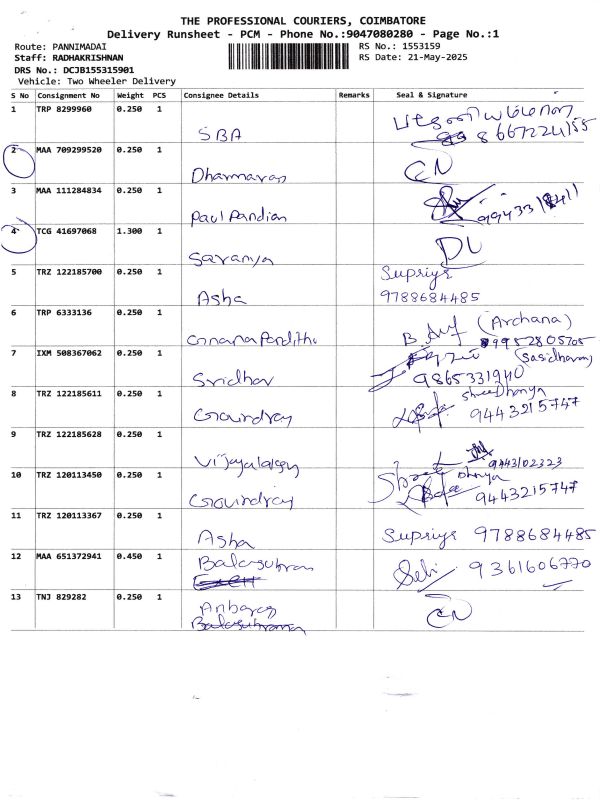 THE PROFESSIONAL COURIERS, COIMBATORE
Delivery Runsheet - PCM - Phone No.:9047080280 - Page No.:1
Route: PANNIMADAI
RS No.: 1553159
Staff: RADHAKRISHNAN
RS Date: 21-May-2025
DRS No.: DCJB155315901
Vehicle: Two Wheeler Delivery
S No Consignment No Weight PCS Consignee Details Remarks Seal & Signature
1 TRP 8299960 0.250 1
SBA 8667224155
2 MAA 709299520 0.250 1
Dharmaraj CN
3 MAA 111284834 0.250 1
Paul Pandian
4 TCG 41697068 1.300 1
Saranya DL
5 TRZ 122185700 0.250 1 Supriya
Asha 9788684485
6 TRP 6333136 0.250 1
(Archana)
B. 9952805705
7 IXM 508367062 0.250 1
Sridhar 9865331940
8 TRZ 122185611 0.250 1 Shree Dhanya
9443215747
9 TRZ 122185628 0.250 1
9443102323
10 TRZ 120113450 0.250 1 Shree Dhanya
9443215747
11 TRZ 120113367 0.250 1
Asha Supriya 9788684485
12 MAA 651372941 0.450 1
Selvi 9361606770
13 TNJ 829282 0.250 1
CN